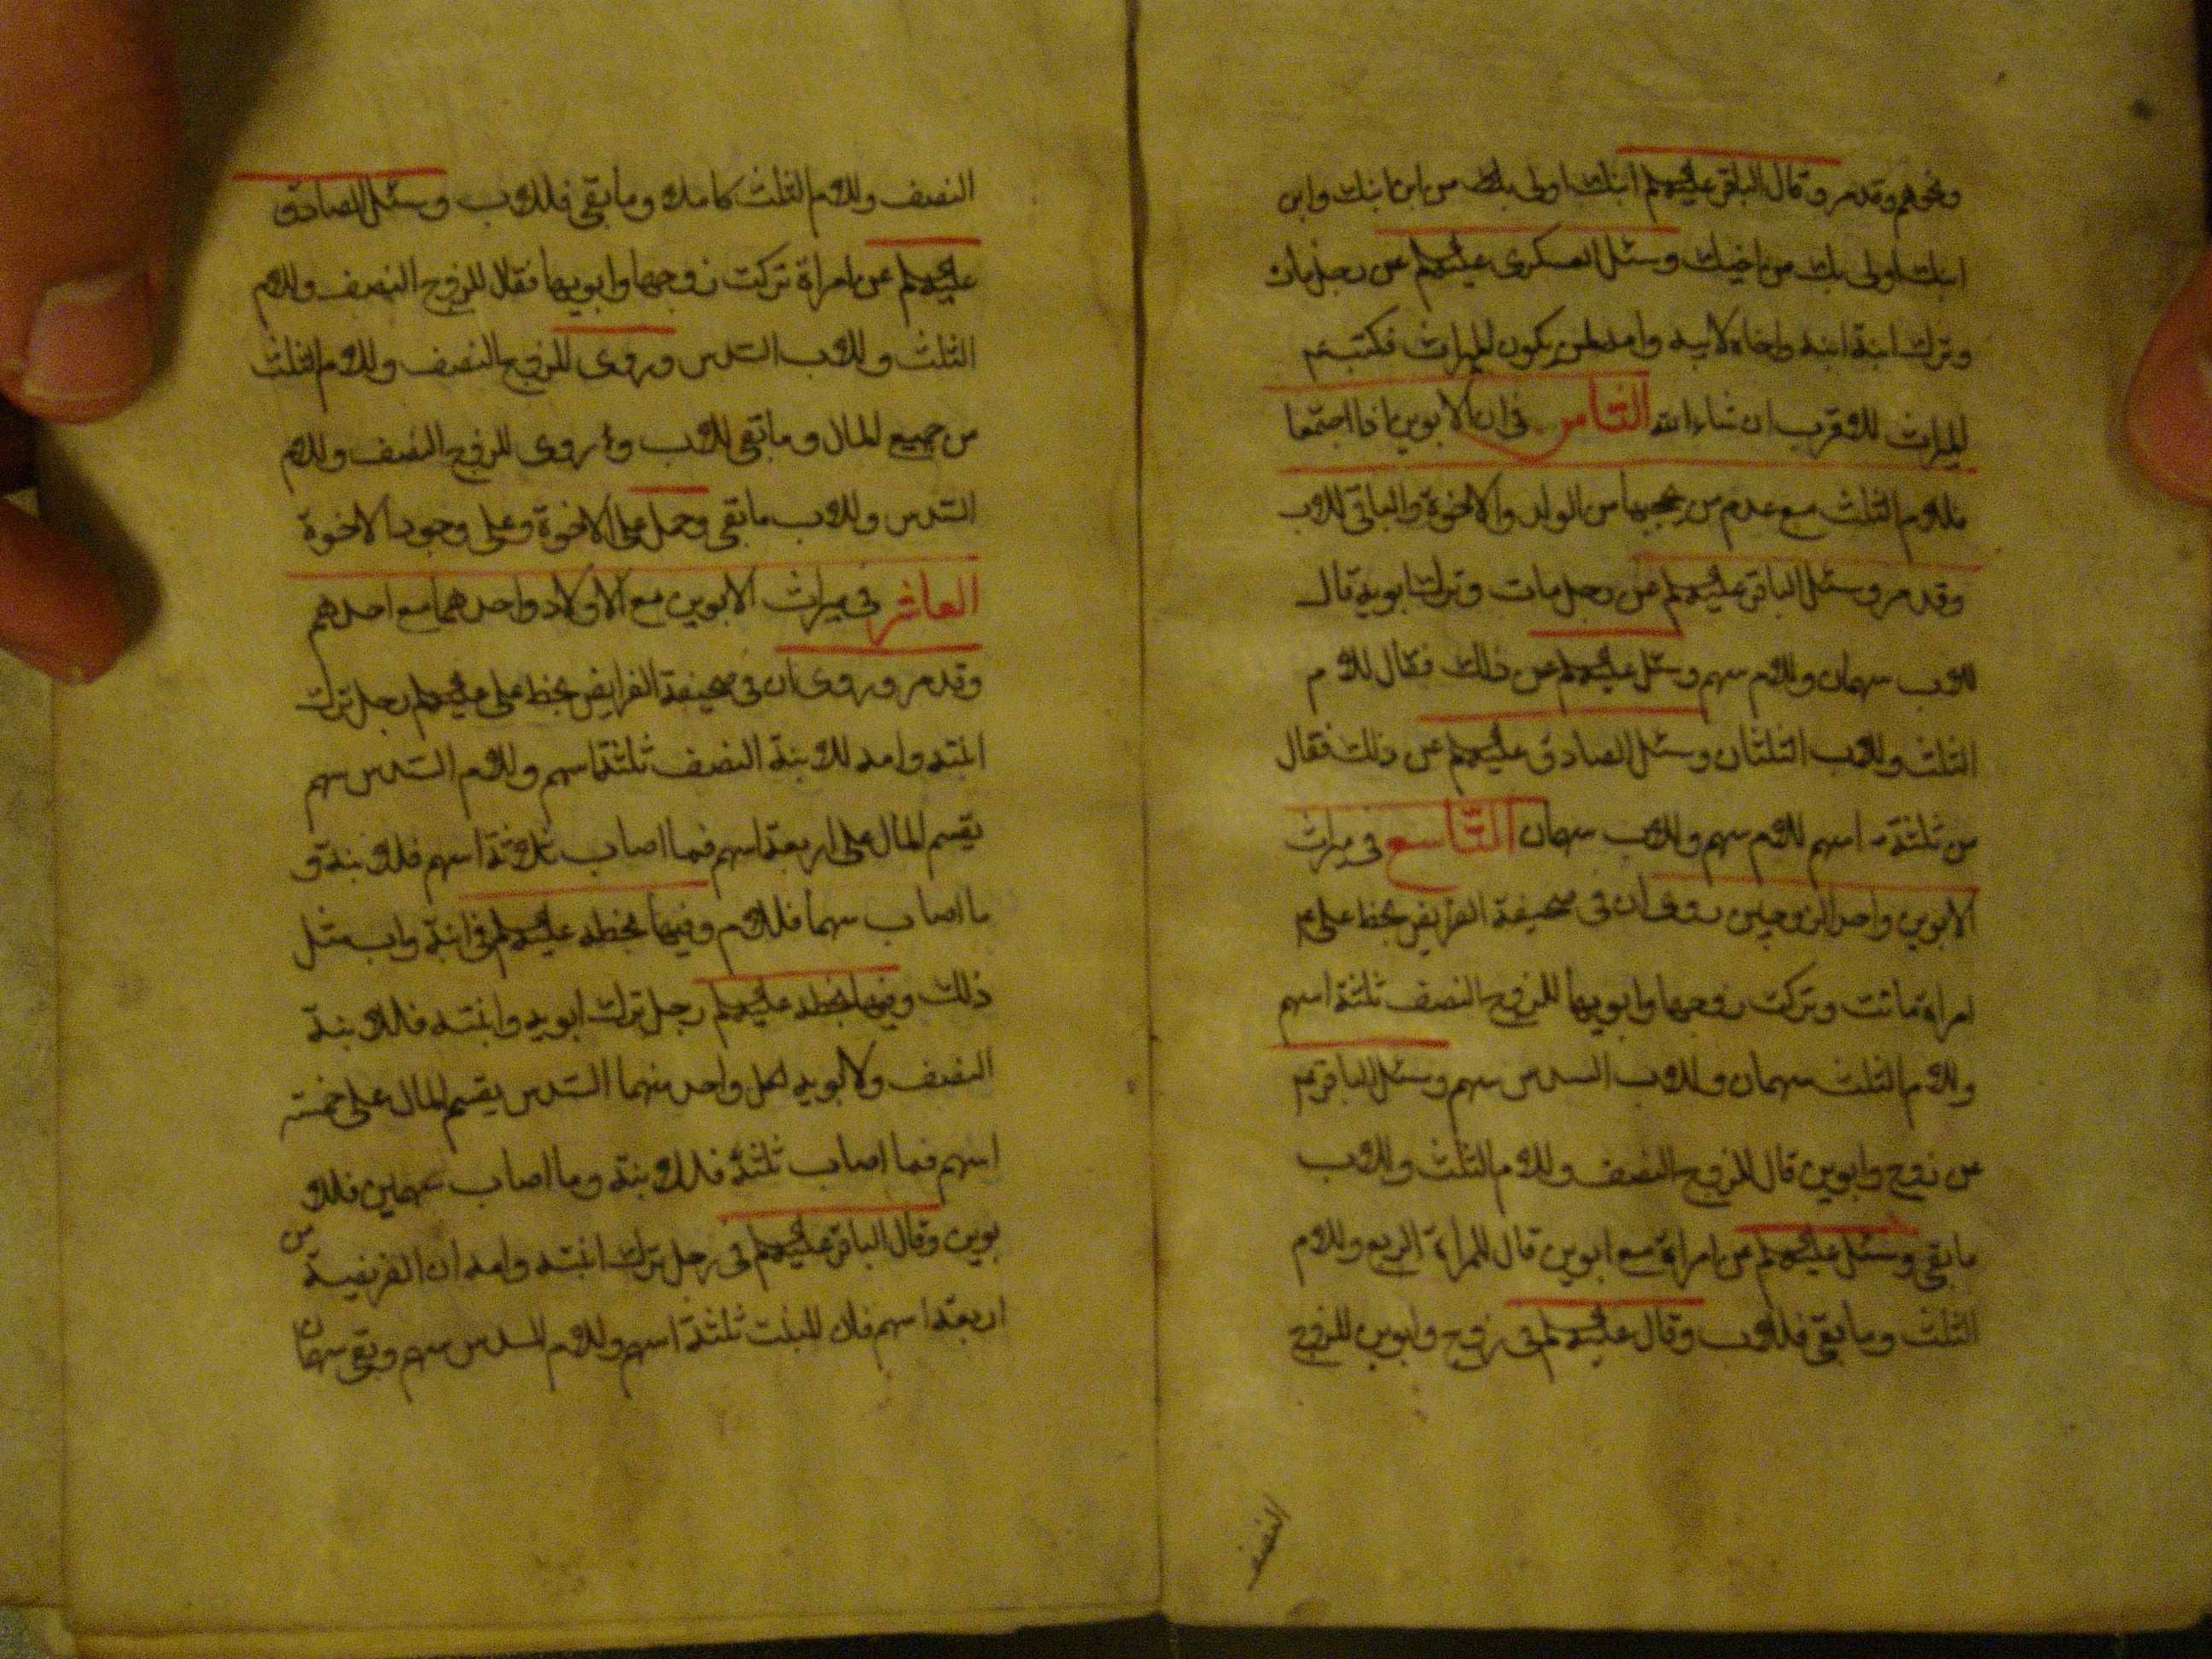 ونحوهم وقد مر وقال الباقر عليه السلم ابنك اولى بك من ابن ابنك وابن
ابنك اولى بك من اخيك وسئل العسكرى عليه السلم عن رجل مات
وترك ابنة ابنه واخاه لابيه وامه لمن يكون الميراث فكتب ع
الميراث للاقرب ان شاء الله الثامن في ان الابوين اذا اجتمعا
فللام الثلث مع عدم من يحجبها من الولد والاخوة والباقي للاب
وقد مر وسئل الباقر عليه السلم عن رجل مات وترك ابويه قال
للاب سهمان وللام سهم وسئل عليه السلم عن ذلك فقال للام
الثلث وللاب الثلثان وسئل الصادق عليه السلم عن ذلك فقال
من ثلثة اسهم للام سهم وللاب سهمان التاسع في ميراث
الابوين واحد الزوجين روى ان في صحيفة الفرايض بخط على ع
امراة ماتت وتركت زوجها وابويها للزوج النصف ثلثة اسهم
وللام الثلث سهمان وللاب السدس سهم وسئل الباقر ع
عن زوج وابوين قال للزوج النصف وللام الثلث وللاب
ما بقي وسئل عليه السلم عن امراة مع ابوين قال للمراة الربع وللام
الثلث وما بقي فللاب وقال عليه السلم في زوج وابوين للزوج
النصف
النصف وللام الثلث كاملا وما بقي فللاب وسئل الصادق
عليه السلم عن امراة تركت زوجها وابويها فقال للزوج النصف وللام
الثلث وللاب السدس وروى للزوج النصف وللام الثلث
من جميع المال وما بقي للاب وروى للزوج النصف وللام
السدس وللاب ما بقي وحمل على الاخوة وعلى وجود الاخوة
العاشر في ميراث الابوين مع الاولاد واحدهما مع احدهم
وقد مر وروى ان في صحيفة الفرايض بخط على عليه السلم رجل ترك
ابنته وامه للابنة النصف ثلثة اسهم وللام السدس سهم
يقسم المال على اربعة اسهم فما اصاب ثلاثة اسهم فللابنة و
ما اصاب سهما فللام وفيها بخطه عليه السلم في ابنة واب مثل
ذلك وفيها بخطه عليه السلم رجل ترك ابويه وابنته فللابنة
النصف ولابويه لكل واحد منهما السدس يقسم المال على خمسة
اسهم فما اصاب ثلثة فللابنة وما اصاب سهمين فللا
بوين وقال الباقر عليه السلم في رجل ترك ابنته وامه ان الفريضة من
اربعة اسهم فان للبنت ثلثة اسهم وللام السدس سهم وبقي سهمان